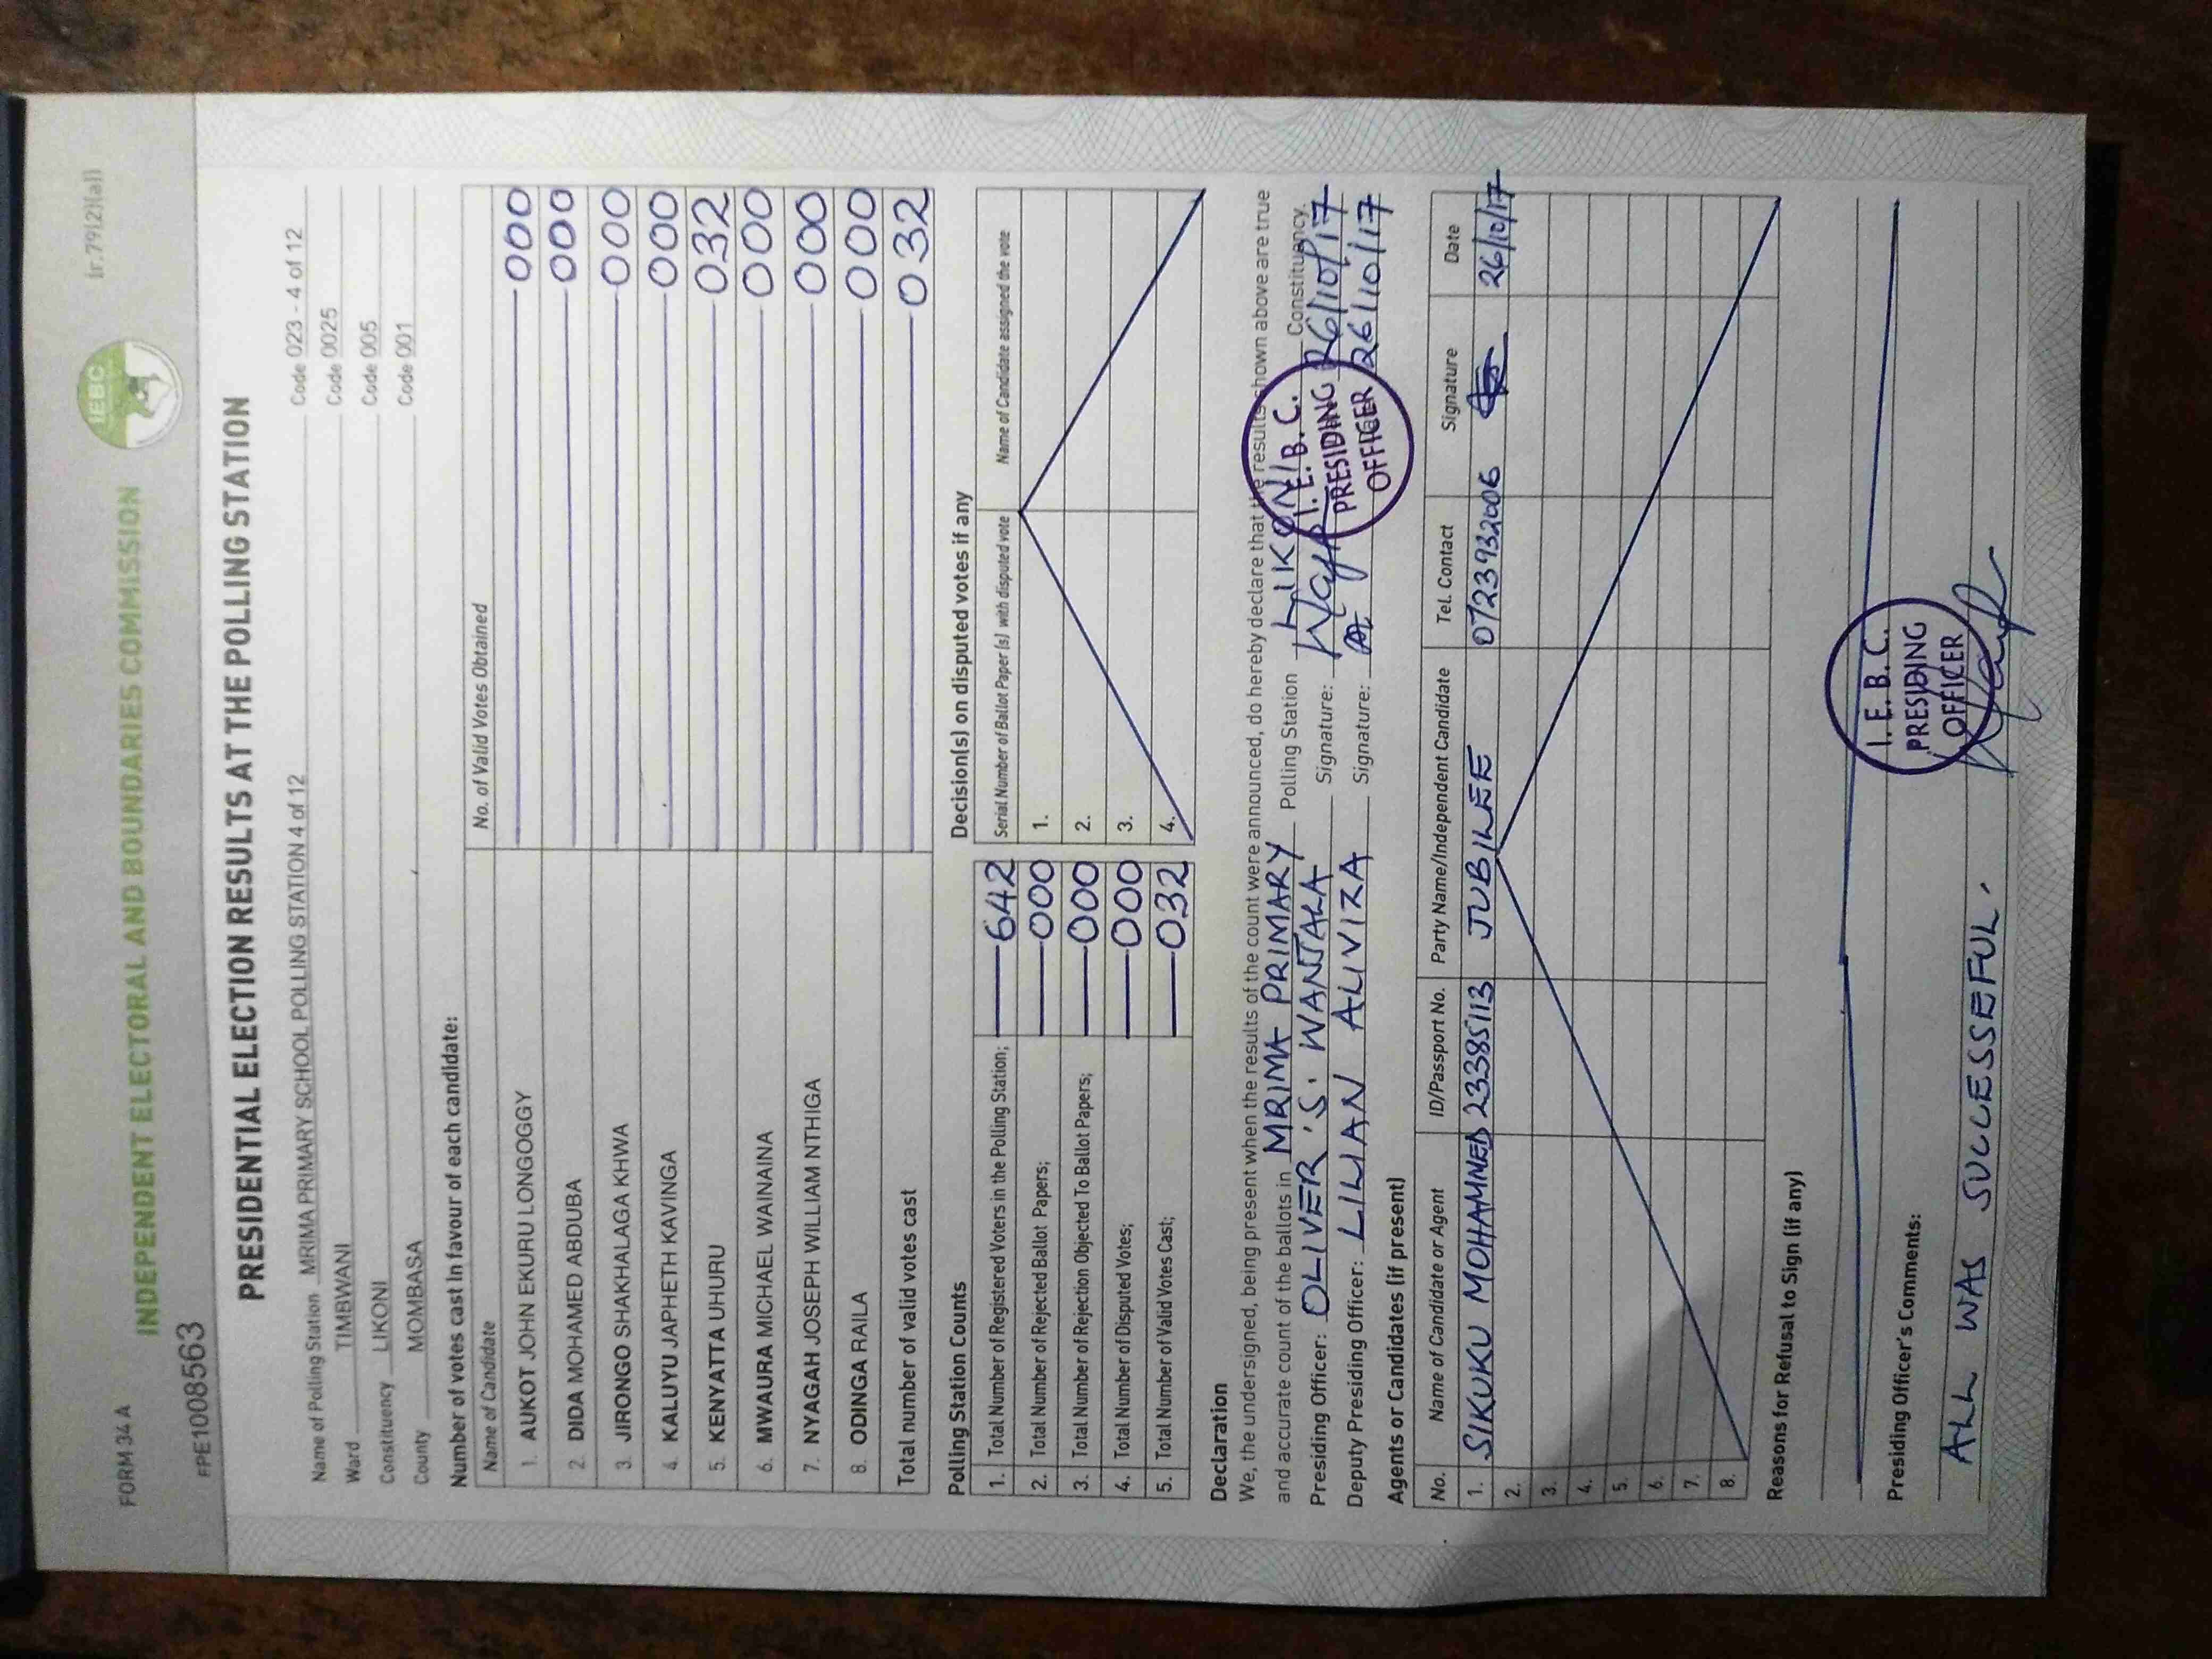 FORM 34 A
(r.79(2)(a))
INDEPENDENT ELECTORAL AND BOUNDARIES COMMISSION
IEBC
FPE1008563
PRESIDENTIAL ELECTION RESULTS AT THE POLLING STATION
Name of Polling Station MRIMA PRIMARY SCHOOL POLLING STATION 4 of 12 Code 023 - 4 of 12
Ward TIMBWANI Code 0025
Constituency LIKONI Code 005
County MOMBASA Code 001
Number of votes cast in favour of each candidate:
Name of Candidate No. of Valid Votes Obtained
1. AUKOT JOHN EKURU LONGOGGY 000
2. DIDA MOHAMED ABDUBA 000
3. JIRONGO SHAKHALAGA KHWA 000
4. KALUYU JAPHETH KAVINGA 000
5. KENYATTA UHURU 032
6. MWAURA MICHAEL WAINAINA 000
7. NYAGAH JOSEPH WILLIAM NTHIGA 000
8. ODINGA RAILA 000
Total number of valid votes cast 032
Polling Station Counts
1. Total Number of Registered Voters in the Polling Station; 642
2. Total Number of Rejected Ballot Papers; 000
3. Total Number of Rejection Objected To Ballot Papers; 000
4. Total Number of Disputed Votes; 000
5. Total Number of Valid Votes Cast; 032
Decision(s) on disputed votes if any
Serial Number of Ballot Paper (s) with disputed vote Name of Candidate assigned the vote
1.
2.
3.
4.
Declaration
We, the undersigned, being present when the results of the count were announced, do hereby declare that the results shown above are true
and accurate count of the ballots in MRIMA PRIMARY Polling Station LIKONI Constituency.
Presiding Officer: OLIVER 'S. WANJALA Signature: 26/10/17
Deputy Presiding Officer: LILIAN ALIVIZA Signature: 26/10/17
I.E.B.C.
PRESIDING
OFFICER
Agents or Candidates (if present)
No. Name of Candidate or Agent ID/Passport No. Party Name/Independent Candidate Tel. Contact Signature Date
1. SIKUKU MOHAMMED 23385113 JUBILEE 0723932006 26/10/17
2.
3.
4.
5.
6.
7.
8.
Reasons for Refusal to Sign (if any)
Presiding Officer's Comments:
I.E.B.C.
PRESIDING
OFFICER
ALL WAS SUCCESSEFUL.